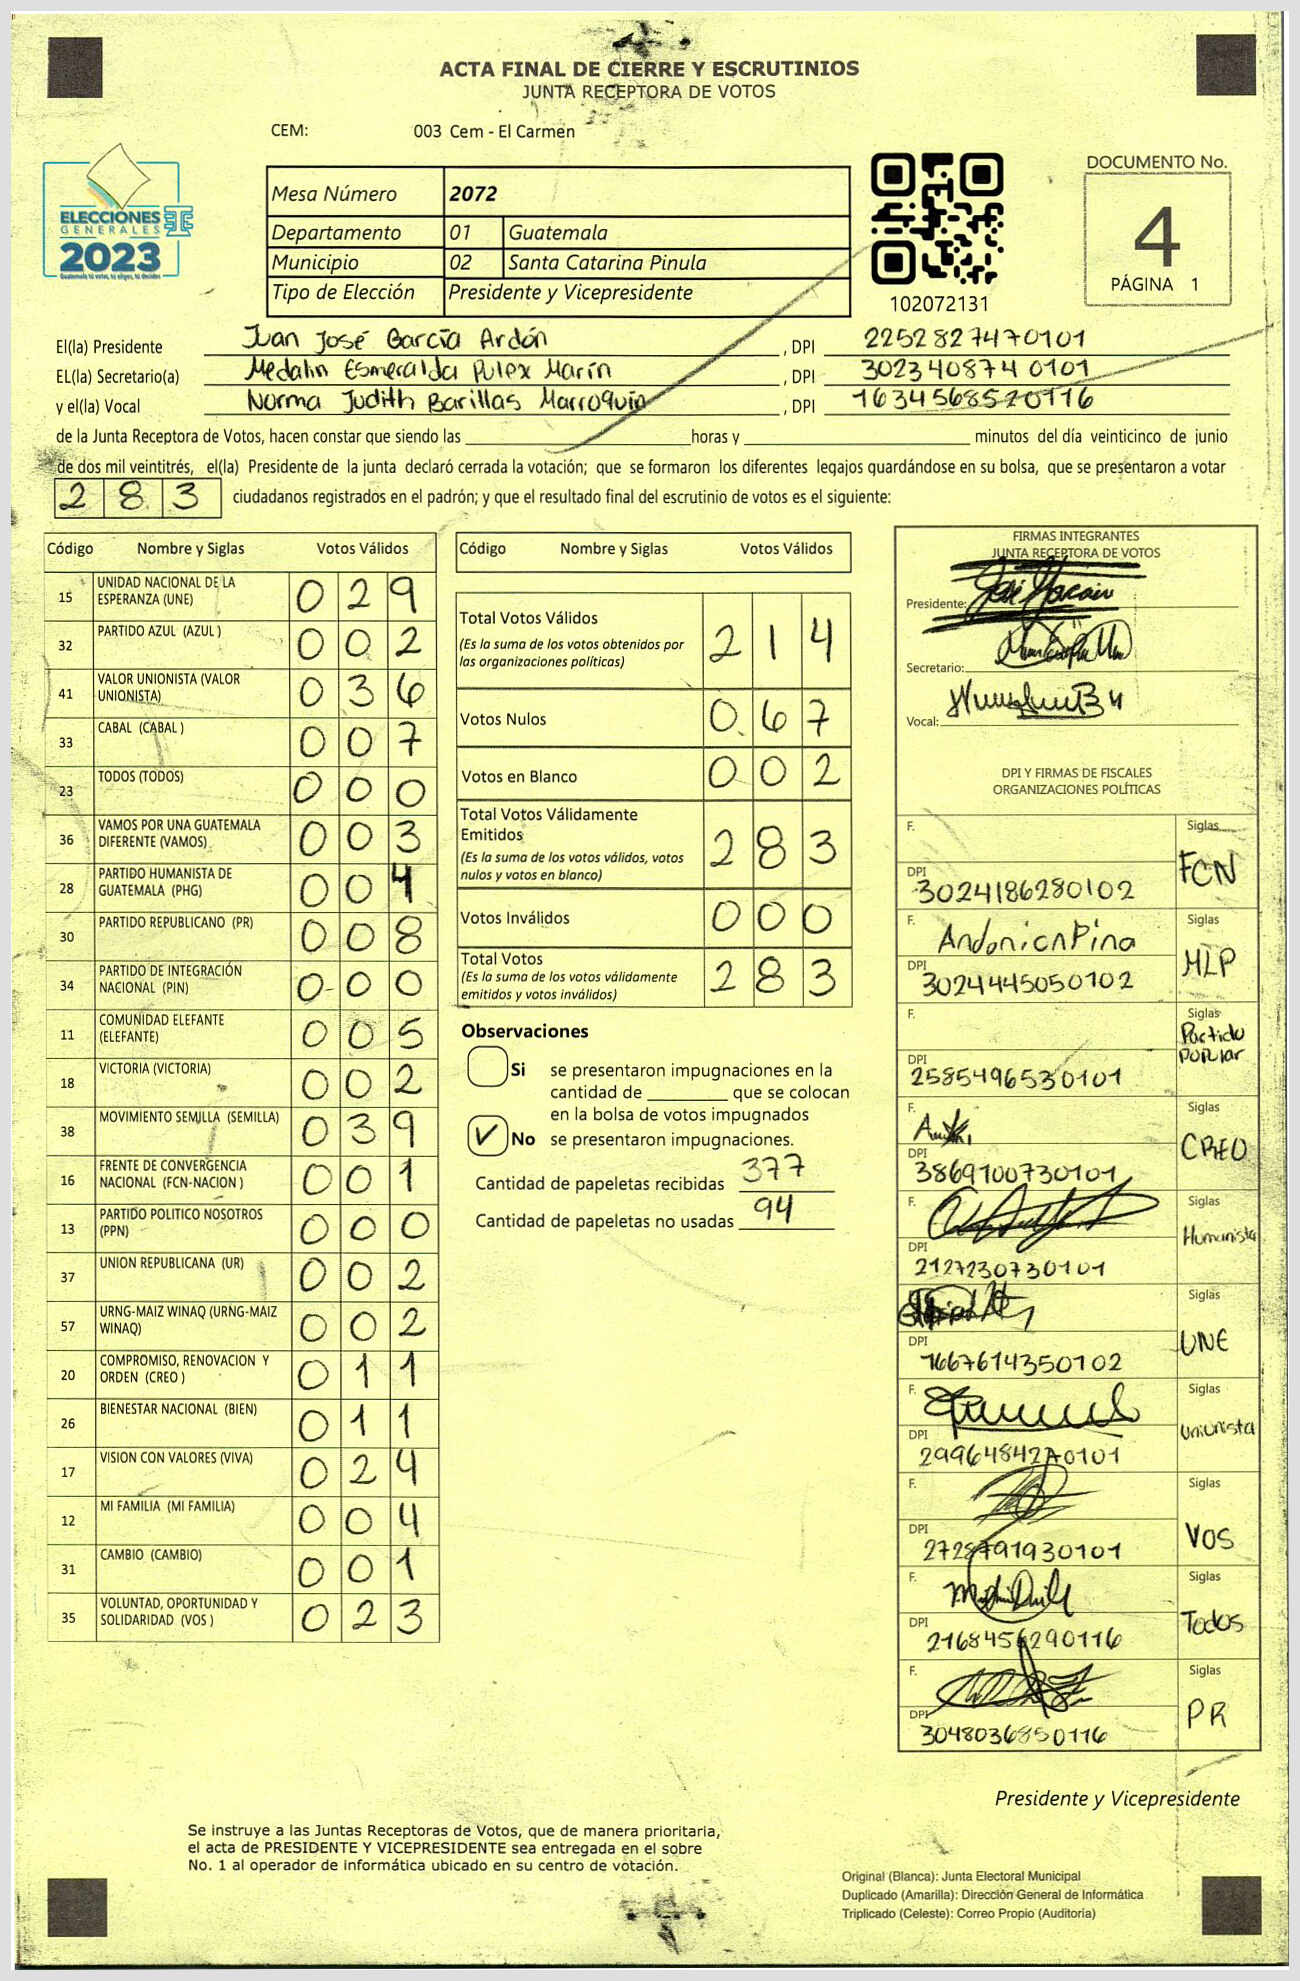 ACTA FINAL DE CIERRE Y ESCRUTINIOS
JUNTA RECEPTORA DE VOTOS
CEM: 003 Cem - El Carmen
ELECCIONES
GENERALES
2023
Guatemala tú votas, tú eliges, tú decides
Mesa Número 2072
Departamento 01 Guatemala
Municipio 02 Santa Catarina Pinula
Tipo de Elección Presidente y Vicepresidente
102072131
DOCUMENTO No.
4
PÁGINA 1
El(la) Presidente Juan José García Ardón , DPI 2252827470101
EL(la) Secretario(a) Medalin Esmeralda Pulex Marín , DPI 3023408740101
y el(la) Vocal Norma Judith Barillas Marroquin , DPI 1634568520116
de la Junta Receptora de Votos, hacen constar que siendo las horas y minutos del día veinticinco de junio
de dos mil veintitrés, el(la) Presidente de la junta declaró cerrada la votación; que se formaron los diferentes legajos guardándose en su bolsa, que se presentaron a votar
283 ciudadanos registrados en el padrón; y que el resultado final del escrutinio de votos es el siguiente:
Código Nombre y Siglas Votos Válidos
15 UNIDAD NACIONAL DE LA ESPERANZA (UNE) 029
32 PARTIDO AZUL (AZUL ) 002
41 VALOR UNIONISTA (VALOR UNIONISTA) 036
33 CABAL (CABAL ) 007
23 TODOS (TODOS) 000
36 VAMOS POR UNA GUATEMALA DIFERENTE (VAMOS) 003
28 PARTIDO HUMANISTA DE GUATEMALA (PHG) 004
30 PARTIDO REPUBLICANO (PR) 008
34 PARTIDO DE INTEGRACIÓN NACIONAL (PIN) 000
11 COMUNIDAD ELEFANTE (ELEFANTE) 005
18 VICTORIA (VICTORIA) 002
38 MOVIMIENTO SEMILLA (SEMILLA) 039
16 FRENTE DE CONVERGENCIA NACIONAL (FCN-NACION ) 001
13 PARTIDO POLITICO NOSOTROS (PPN) 000
37 UNION REPUBLICANA (UR) 002
57 URNG-MAIZ WINAQ (URNG-MAIZ WINAQ) 002
20 COMPROMISO, RENOVACION Y ORDEN (CREO ) 011
26 BIENESTAR NACIONAL (BIEN) 011
17 VISION CON VALORES (VIVA) 024
12 MI FAMILIA (MI FAMILIA) 004
31 CAMBIO (CAMBIO) 001
35 VOLUNTAD, OPORTUNIDAD Y SOLIDARIDAD (VOS ) 023
Código Nombre y Siglas Votos Válidos
Total Votos Válidos 214
(Es la suma de los votos obtenidos por
las organizaciones políticas)
Votos Nulos 067
Votos en Blanco 002
Total Votos Válidamente
Emitidos 283
(Es la suma de los votos válidos, votos
nulos y votos en blanco)
Votos Inválidos 000
Total Votos 283
(Es la suma de los votos válidamente
emitidos y votos inválidos)
Observaciones
Si se presentaron impugnaciones en la
cantidad de que se colocan
en la bolsa de votos impugnados
✓ No se presentaron impugnaciones.
Cantidad de papeletas recibidas 377
Cantidad de papeletas no usadas 94
FIRMAS INTEGRANTES
JUNTA RECEPTORA DE VOTOS
Presidente:
Secretario:
Vocal:
DPI Y FIRMAS DE FISCALES
ORGANIZACIONES POLÍTICAS
F. Siglas FCN
DPI 3024186280102
F. Siglas MLP
DPI 3024445050102
F. Siglas Partido Popular
DPI 2585496530101
F. Siglas CREO
DPI 3869100730101
F. Siglas Humanista
DPI 2127230730101
F. Siglas UNE
DPI 1667614350102
F. Siglas Unionista
DPI
F. Siglas VOS
DPI 2728791930101
F. Siglas Todos
DPI 2168456290116
F. Siglas PR
DPI 3048036850116
Presidente y Vicepresidente
Se instruye a las Juntas Receptoras de Votos, que de manera prioritaria,
el acta de PRESIDENTE Y VICEPRESIDENTE sea entregada en el sobre
No. 1 al operador de informática ubicado en su centro de votación.
Original (Blanca): Junta Electoral Municipal
Duplicado (Amarilla): Dirección General de Informática
Triplicado (Celeste): Correo Propio (Auditoría)